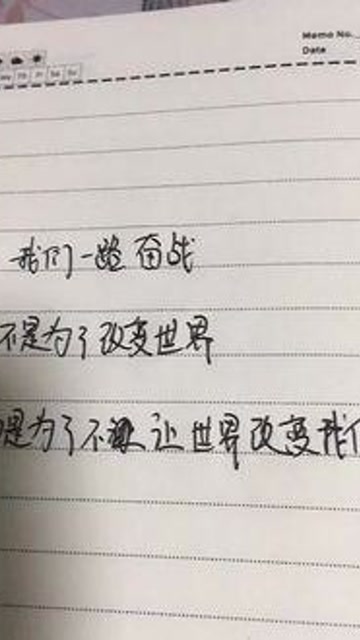 Memo No.
Date
我们一路奋战
不是为了改变世界
是为了不让世界改变我们